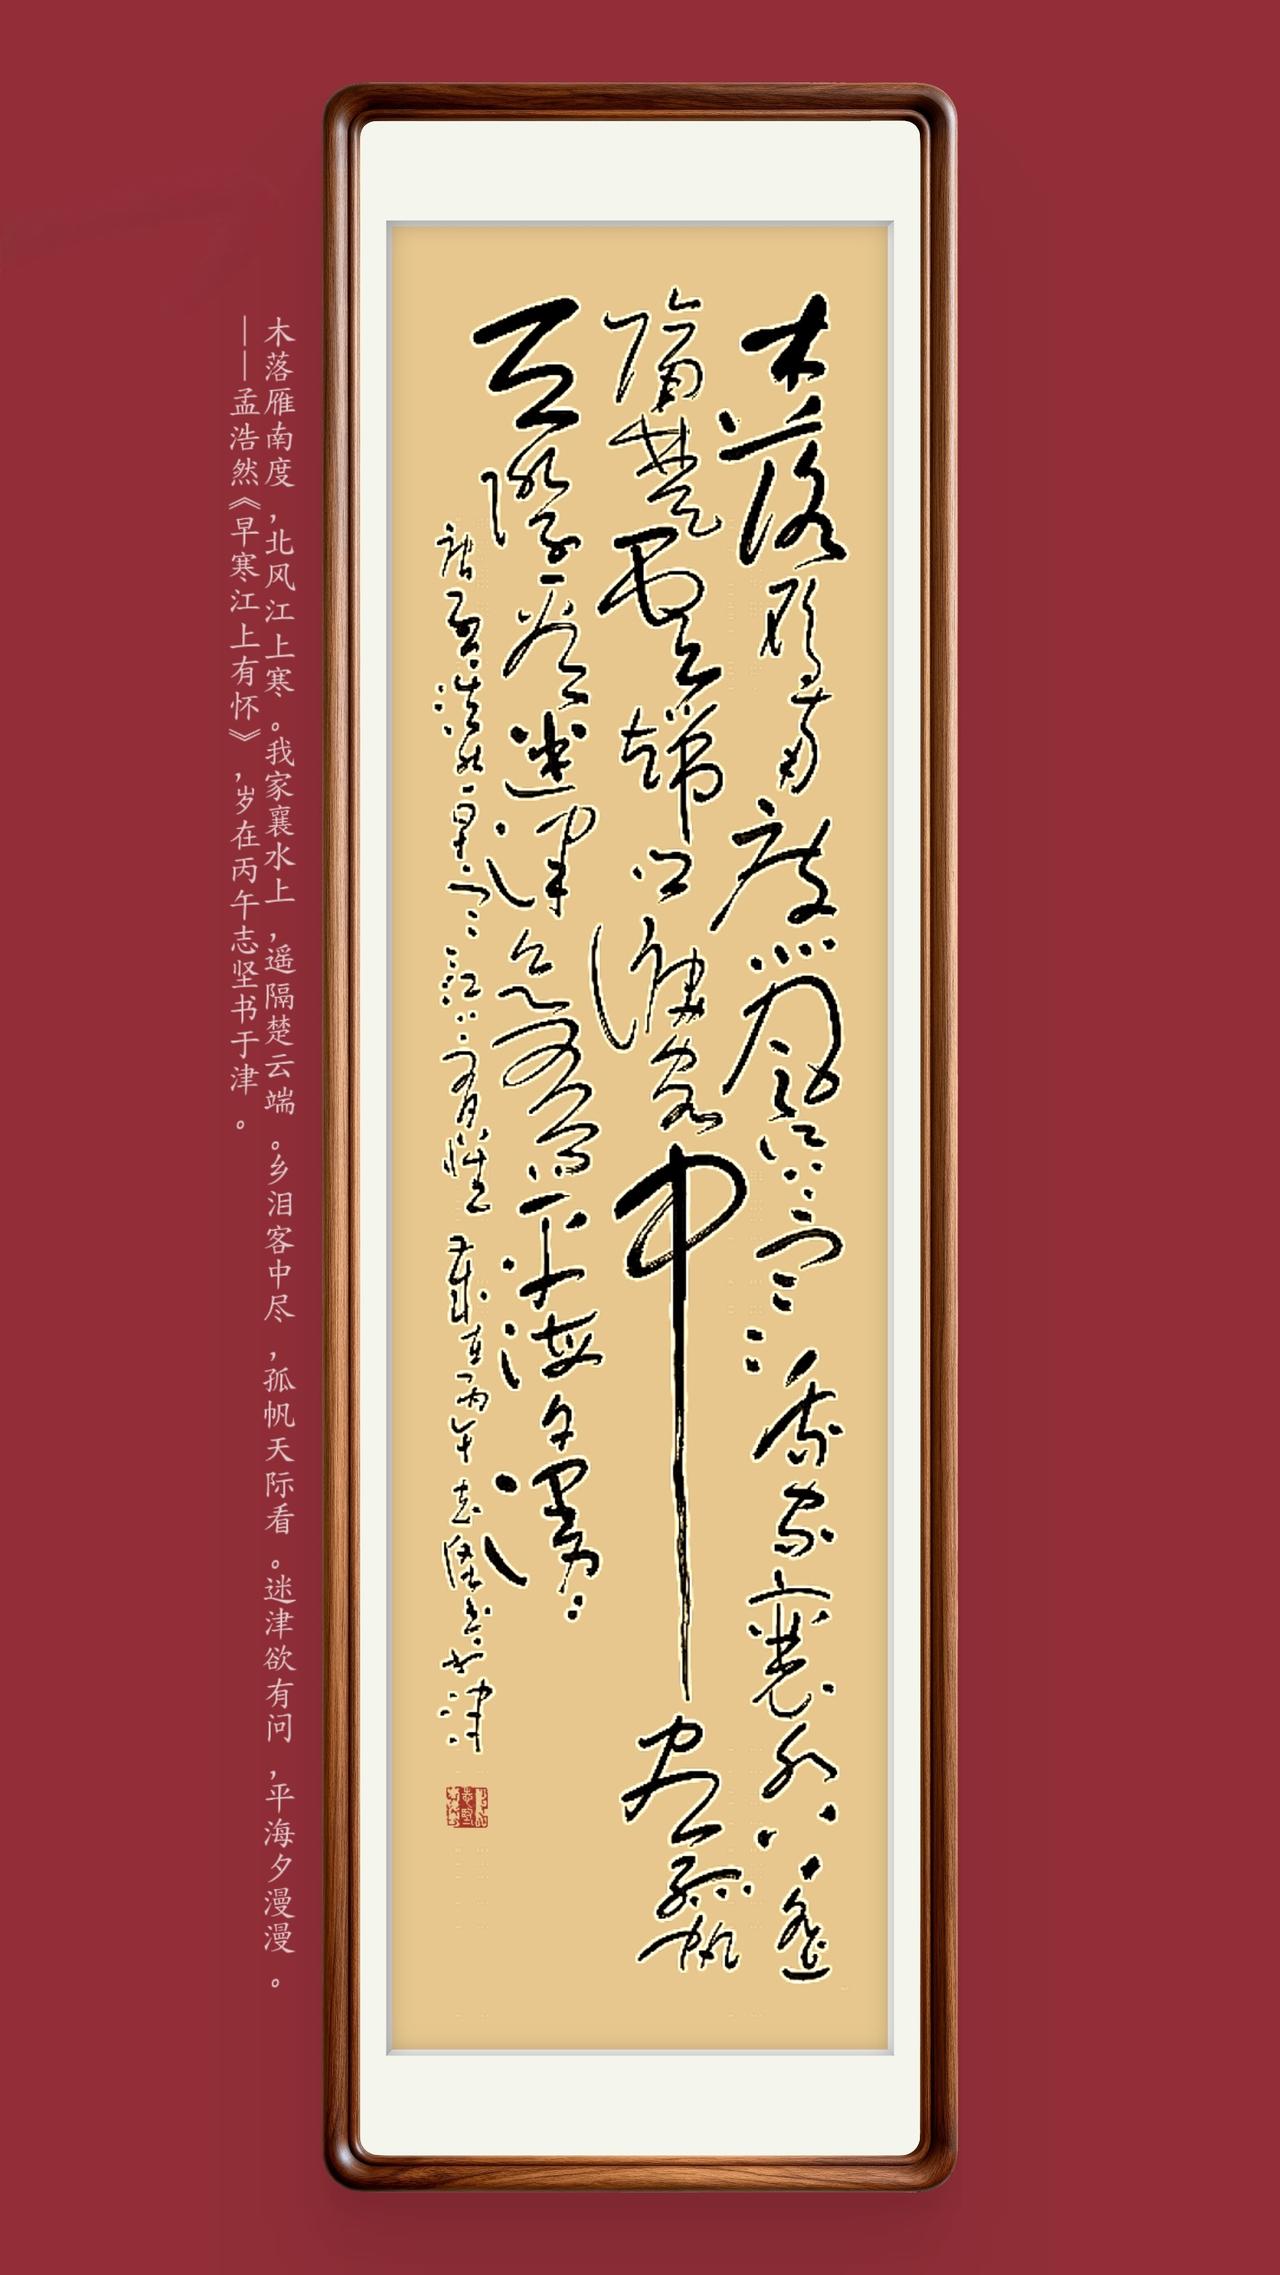 木落雁南度北风江上寒我家襄水上遥
隔楚云端乡泪客中尽孤帆
天际看迷津欲有问平海夕漫漫
唐孟浩然早寒江上有怀岁在丙午志坚书于津
木落雁南度，北风江上寒。我家襄水上，遥隔楚云端。乡泪客中尽，孤帆天际看。迷津欲有问，平海夕漫漫。
——孟浩然《早寒江上有怀》，岁在丙午志坚书于津。